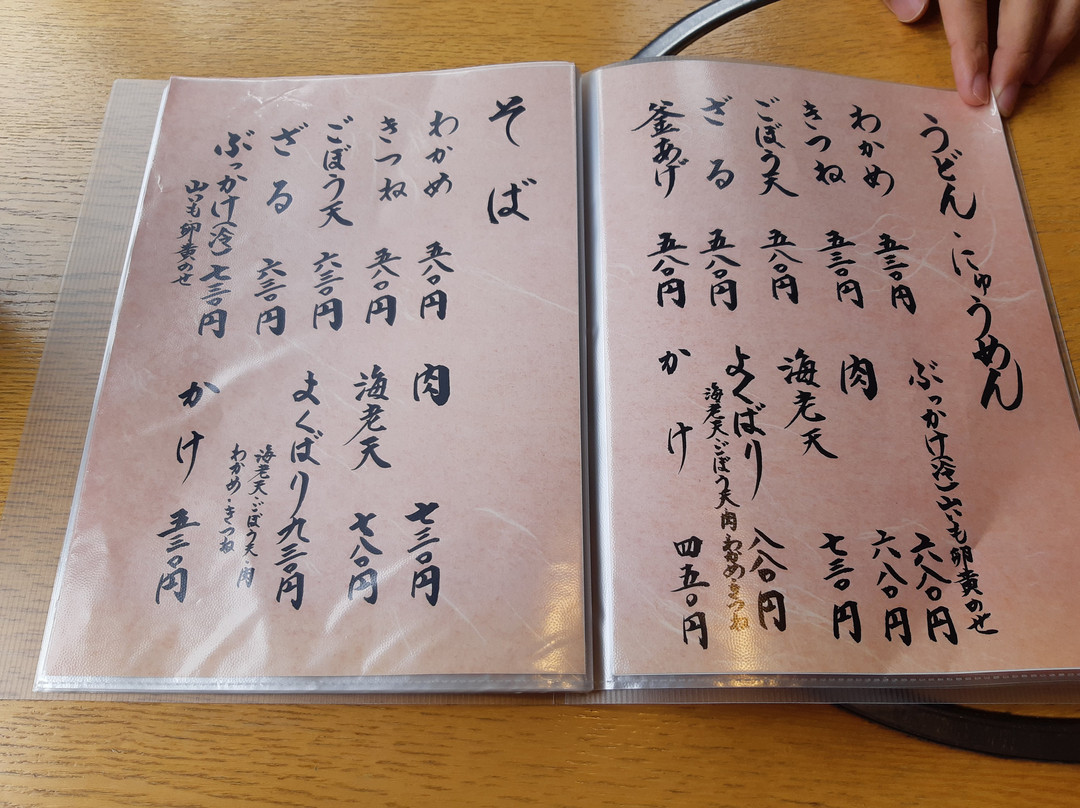 うどん・にゅうめん
わかめ 五三〇円
きつね 五三〇円
ごぼう天 五八〇円
ざる 五八〇円
釜あげ 五八〇円
ぶっかけ(冷)山いも卵黄のせ 六八〇円
肉 六八〇円
海老天 七三〇円
よくばり 八八〇円
海老天・ごぼう天・肉・わかめ・きつね
かけ 四五〇円
そば
わかめ 五八〇円
きつね 五八〇円
ごぼう天 六三〇円
ざる 六三〇円
ぶっかけ(冷) 七三〇円
山いも卵黄のせ
肉 七三〇円
海老天 七八〇円
よくばり 九三〇円
海老天・ごぼう天・肉
わかめ・きつね
かけ 五三〇円